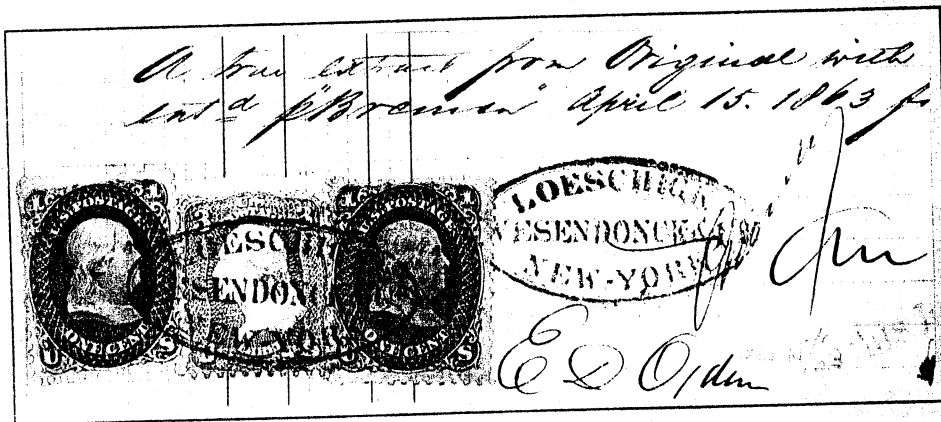 A true extract from Original with
entd p "Bremen" April 15. 1863 fr
U.S. POSTAGE
ONE CENT
U S
ESCHI
ENDON
EW-YO
U.S. POSTAGE
ONE CENT
U S
LOESCHIGK
WESENDONCK & Co
NEW-YORK
E D Ogden